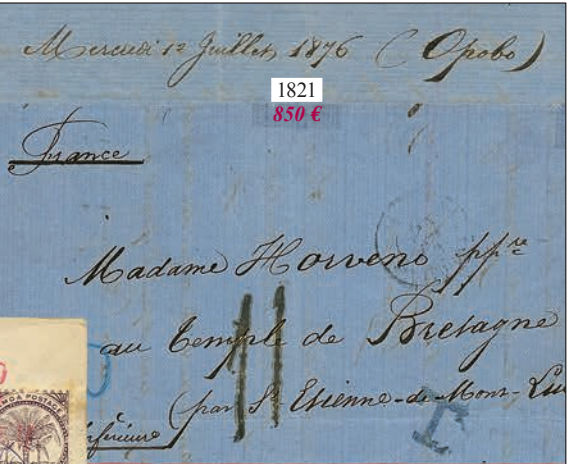 Mercredi 12 Juillet 1876 (Opobo)
1821
850 €
France
Madame Horveno ppre
11
au Temple de Bretagne
(par St Etienne-de-Mont-Luc
férieure
T
MOA POSTAGE